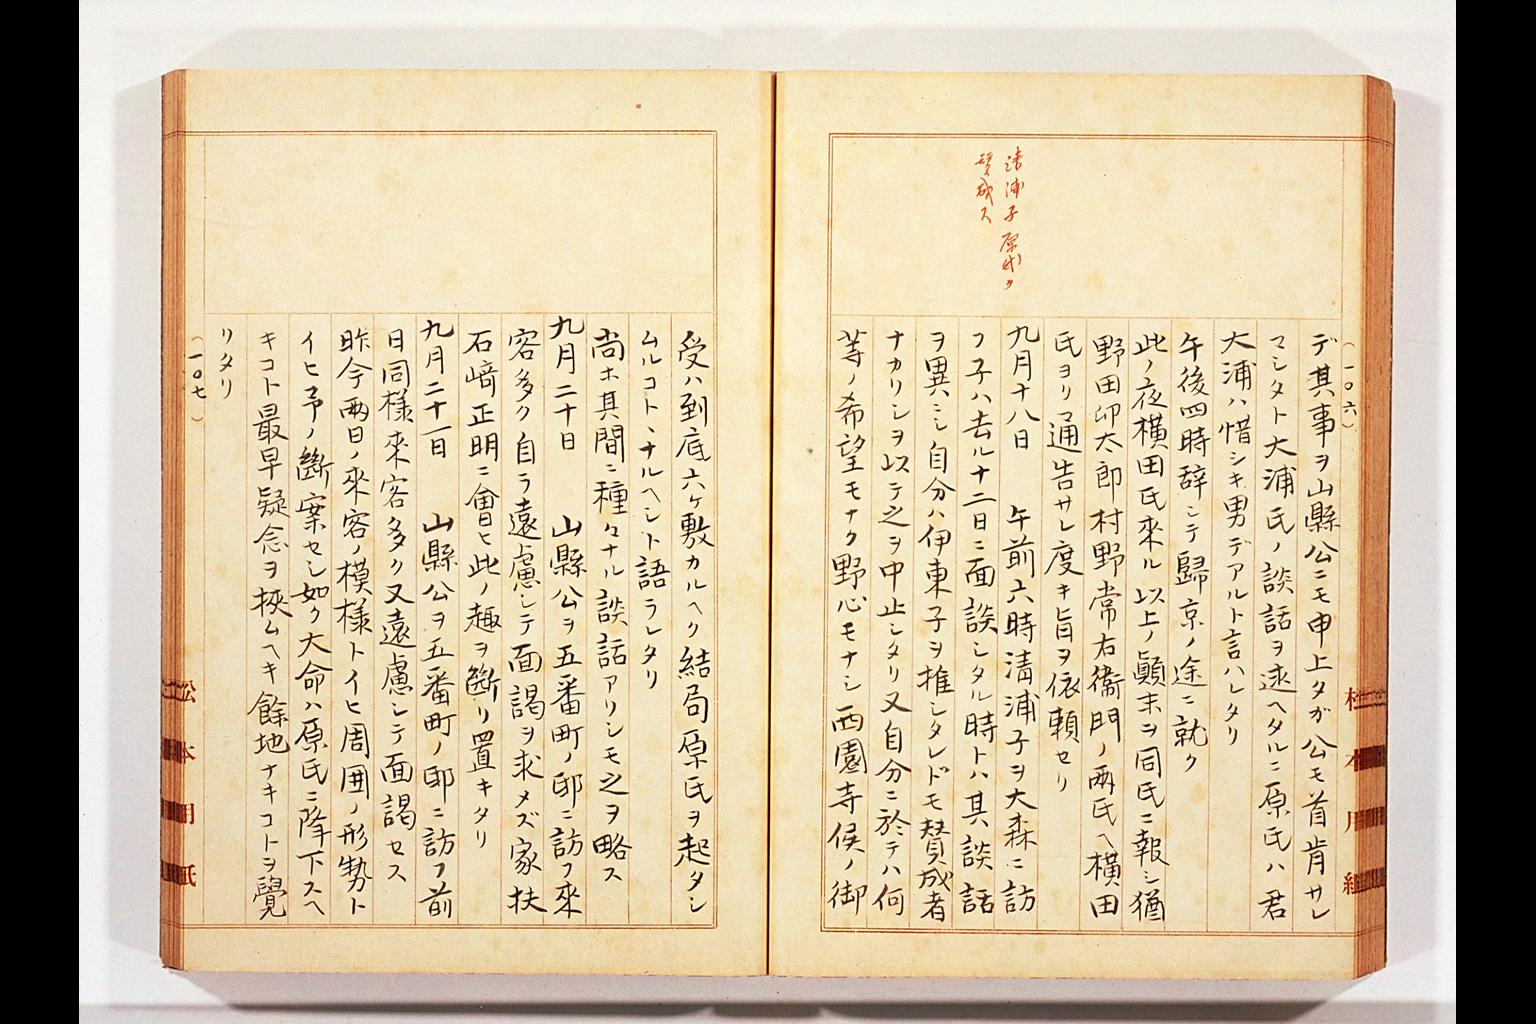 (一〇六)
清浦子原氏ヲ
賛成ス
デ其事ヲ山縣公ニモ申上タガ公モ首肯サレ
マシタト大浦氏ノ談話ヲ述ヘタルニ原氏ハ君
大浦ハ惜シキ男デアルト言ハレタリ
午後四時辞シテ歸京ノ途ニ就ク
此ノ夜横田氏來ル以上ノ顛末ヲ同氏ニ報シ猶
野田卯太郎村野常右衞門ノ兩氏ヘ横田
氏ヨリ通告サレ度キ旨ヲ依頼セリ
九月十八日 午前六時清浦子ヲ大森ニ訪
フ子ハ去ル十二日ニ面談シタル時トハ其談話
ヲ異ニシ自分ハ伊東子ヲ推シタレドモ賛成者
ナカリシヲ以テ之ヲ中止シタリ又自分ニ於テハ何
等ノ希望モナク野心モナシ西園寺侯ノ御
受ハ到底六ヶ敷カルヘク結局原氏ヲ起タシ
ムルコトヽナルヘシト語ラレタリ
尚ホ其間ニ種々ナル談話アリシモ之ヲ略ス
九月二十日 山縣公ヲ五番町ノ邸ニ訪フ來
客多ク自ラ遠慮シテ面謁ヲ求メズ家扶
石﨑正明ニ會ヒ此ノ趣ヲ斷リ置キタリ
九月二十一日 山縣公ヲ五番町ノ邸ニ訪フ前
日同様來客多ク又遠慮シテ面謁セス
昨今兩日ノ來客ノ模様トイヒ周囲ノ形勢ト
イヒ予ノ斷案セシ如ク大命ハ原氏ニ降下スヘ
キコト最早疑念ヲ挾ムヘキ餘地ナキコトヲ覺
リタリ
(一〇七)
松本用紙